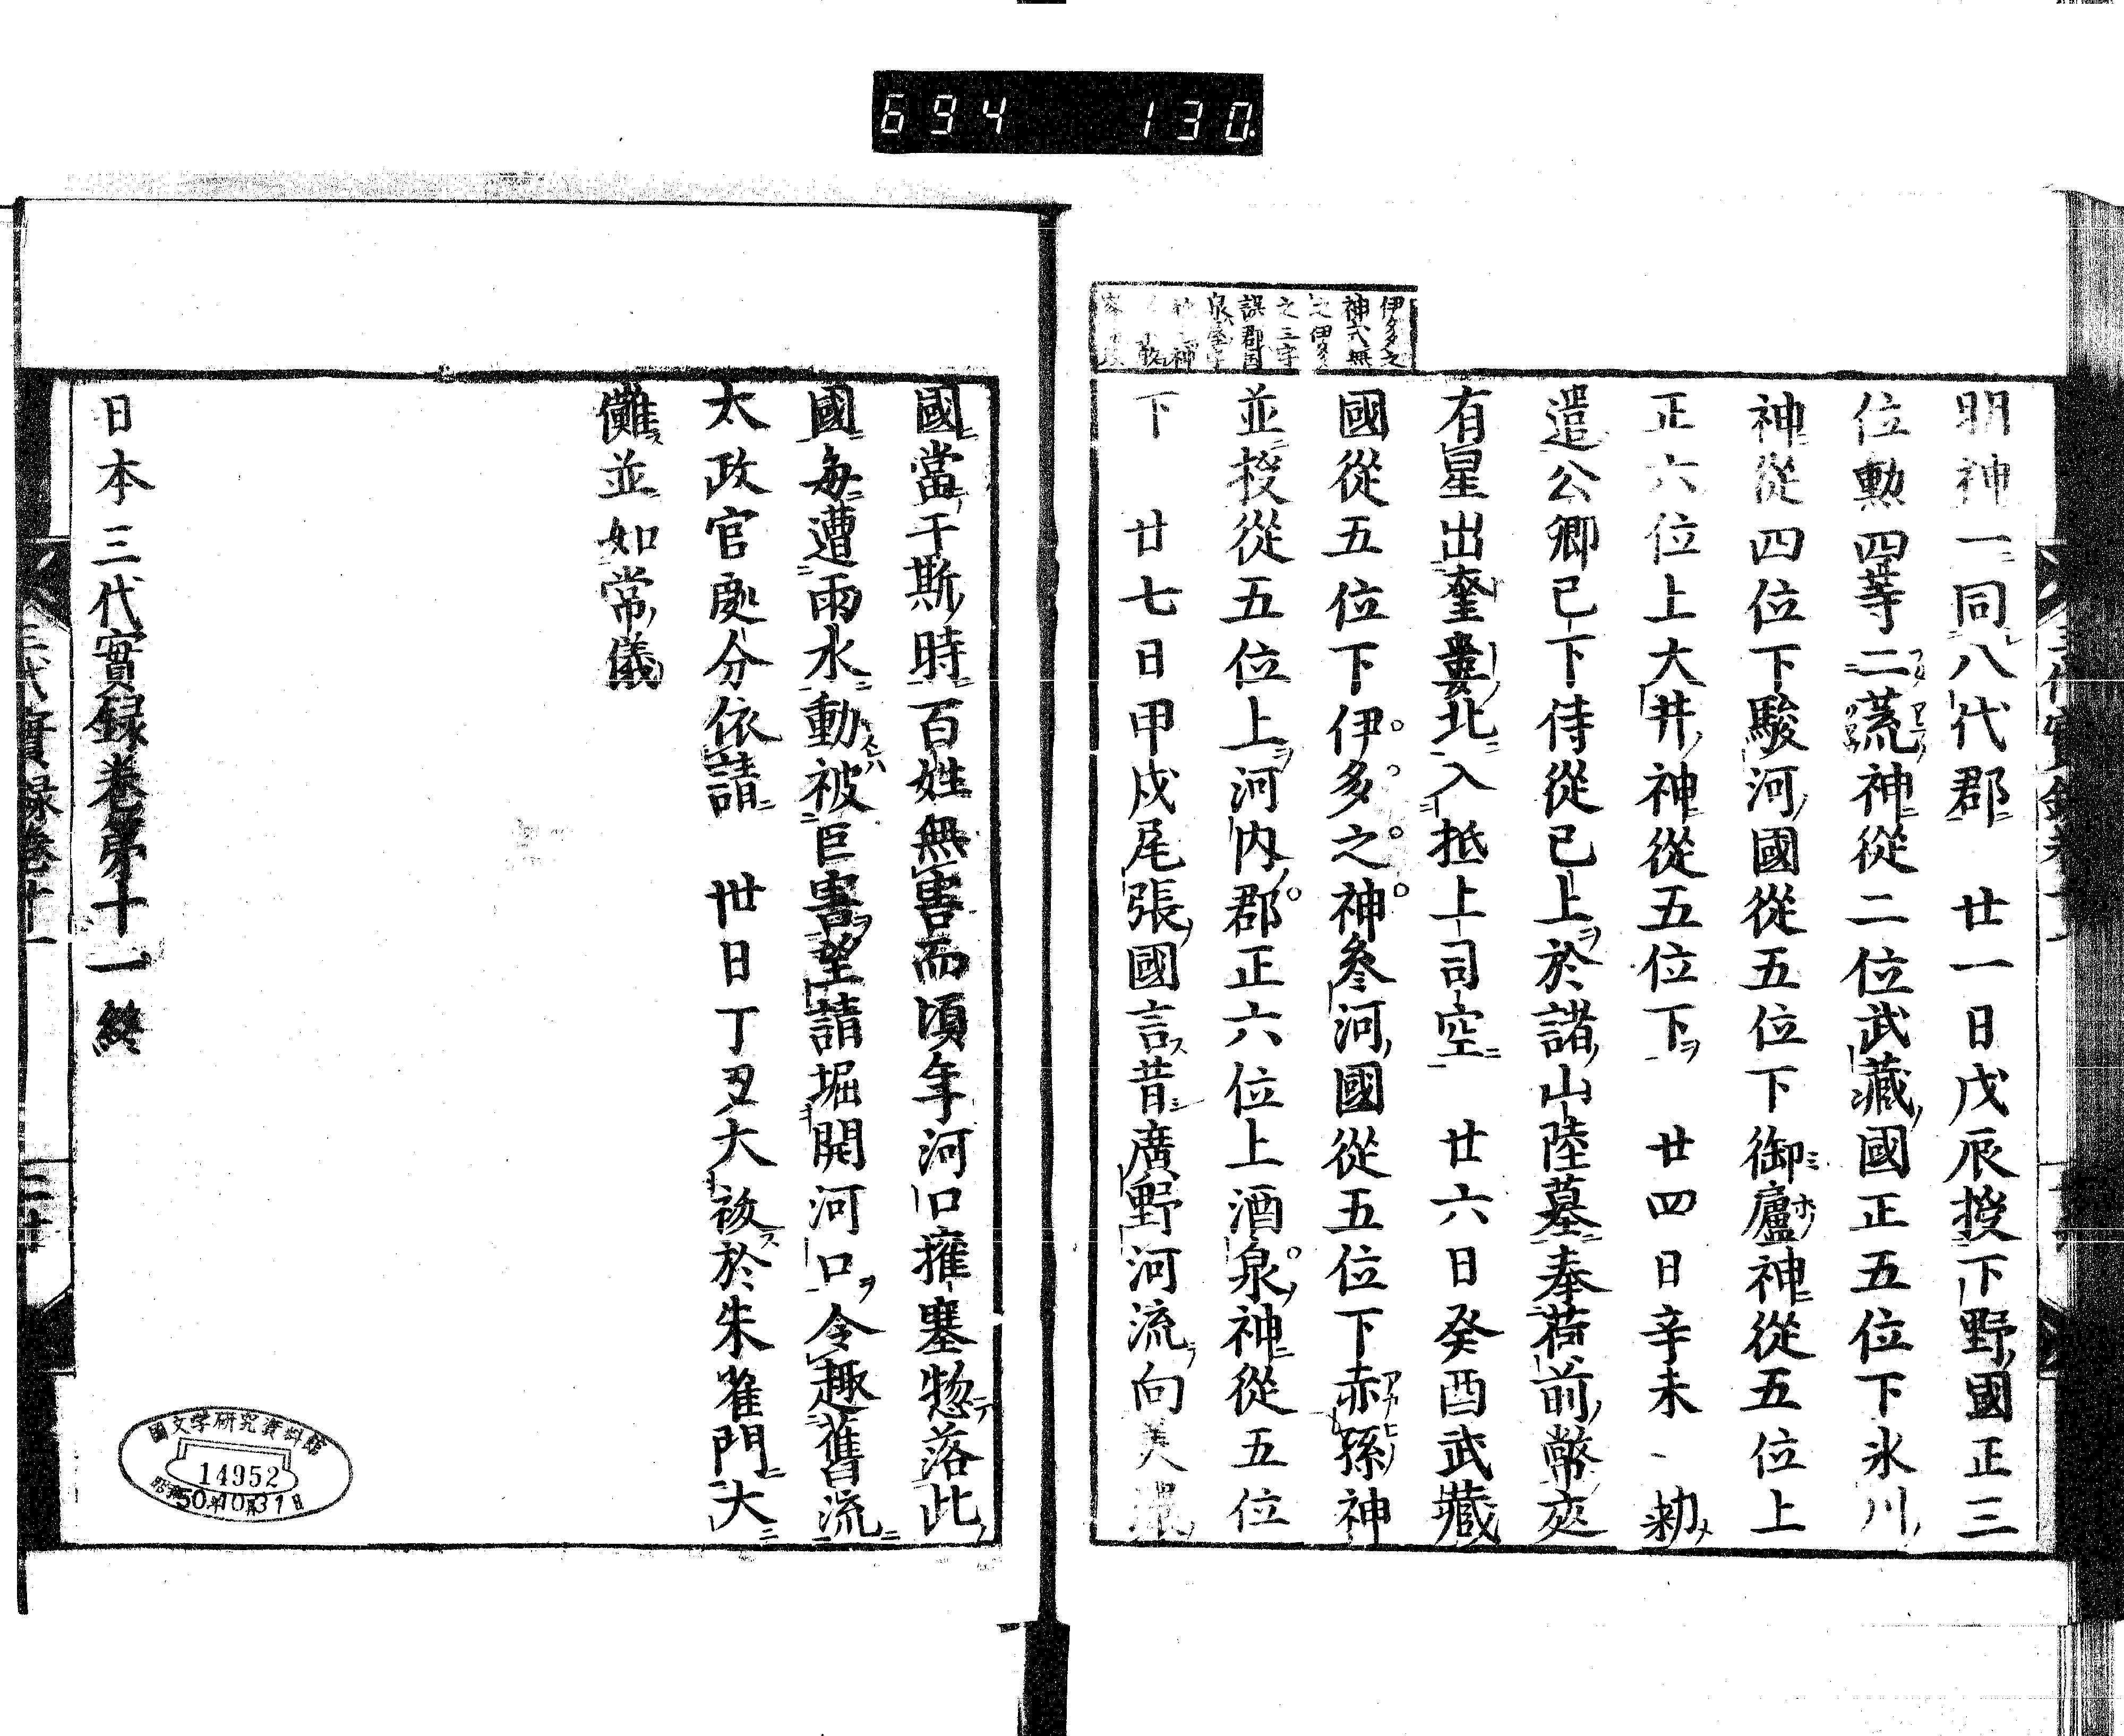 694 130
伊多之
神式無
之伊多
之三字
誤郡因
泉
明神一同八代郡 廿一日戊辰授下野國正三
位勲四等二荒神從二位武藏國正五位下氷川
神從四位下駿河國從五位下御廬神從五位上
正六位上大井神從五位下 廿四日辛未 勅
遣公卿已下侍從已上於諸山陵墓奉荷前幣是夜
有星出奎婁北入抵上司空 廿六日癸酉武藏
國從五位下伊多之神參河國從五位下赤孫神
並授從五位上河内郡正六位上酒泉神從五位
下 廿七日甲戌尾張國言昔廣野河流向美濃
國當于斯時百姓無害而頃年河口擁塞惣落此
國毎遭雨水動被巨害望請堀開河口令趣舊流
太政官處分依請 丗日丁丑大祓於朱雀門大
儺並如常儀
日本三代實録卷第十一終
三代實録卷十一
二十
國文学研究資料館
14952
昭和50年10月31日